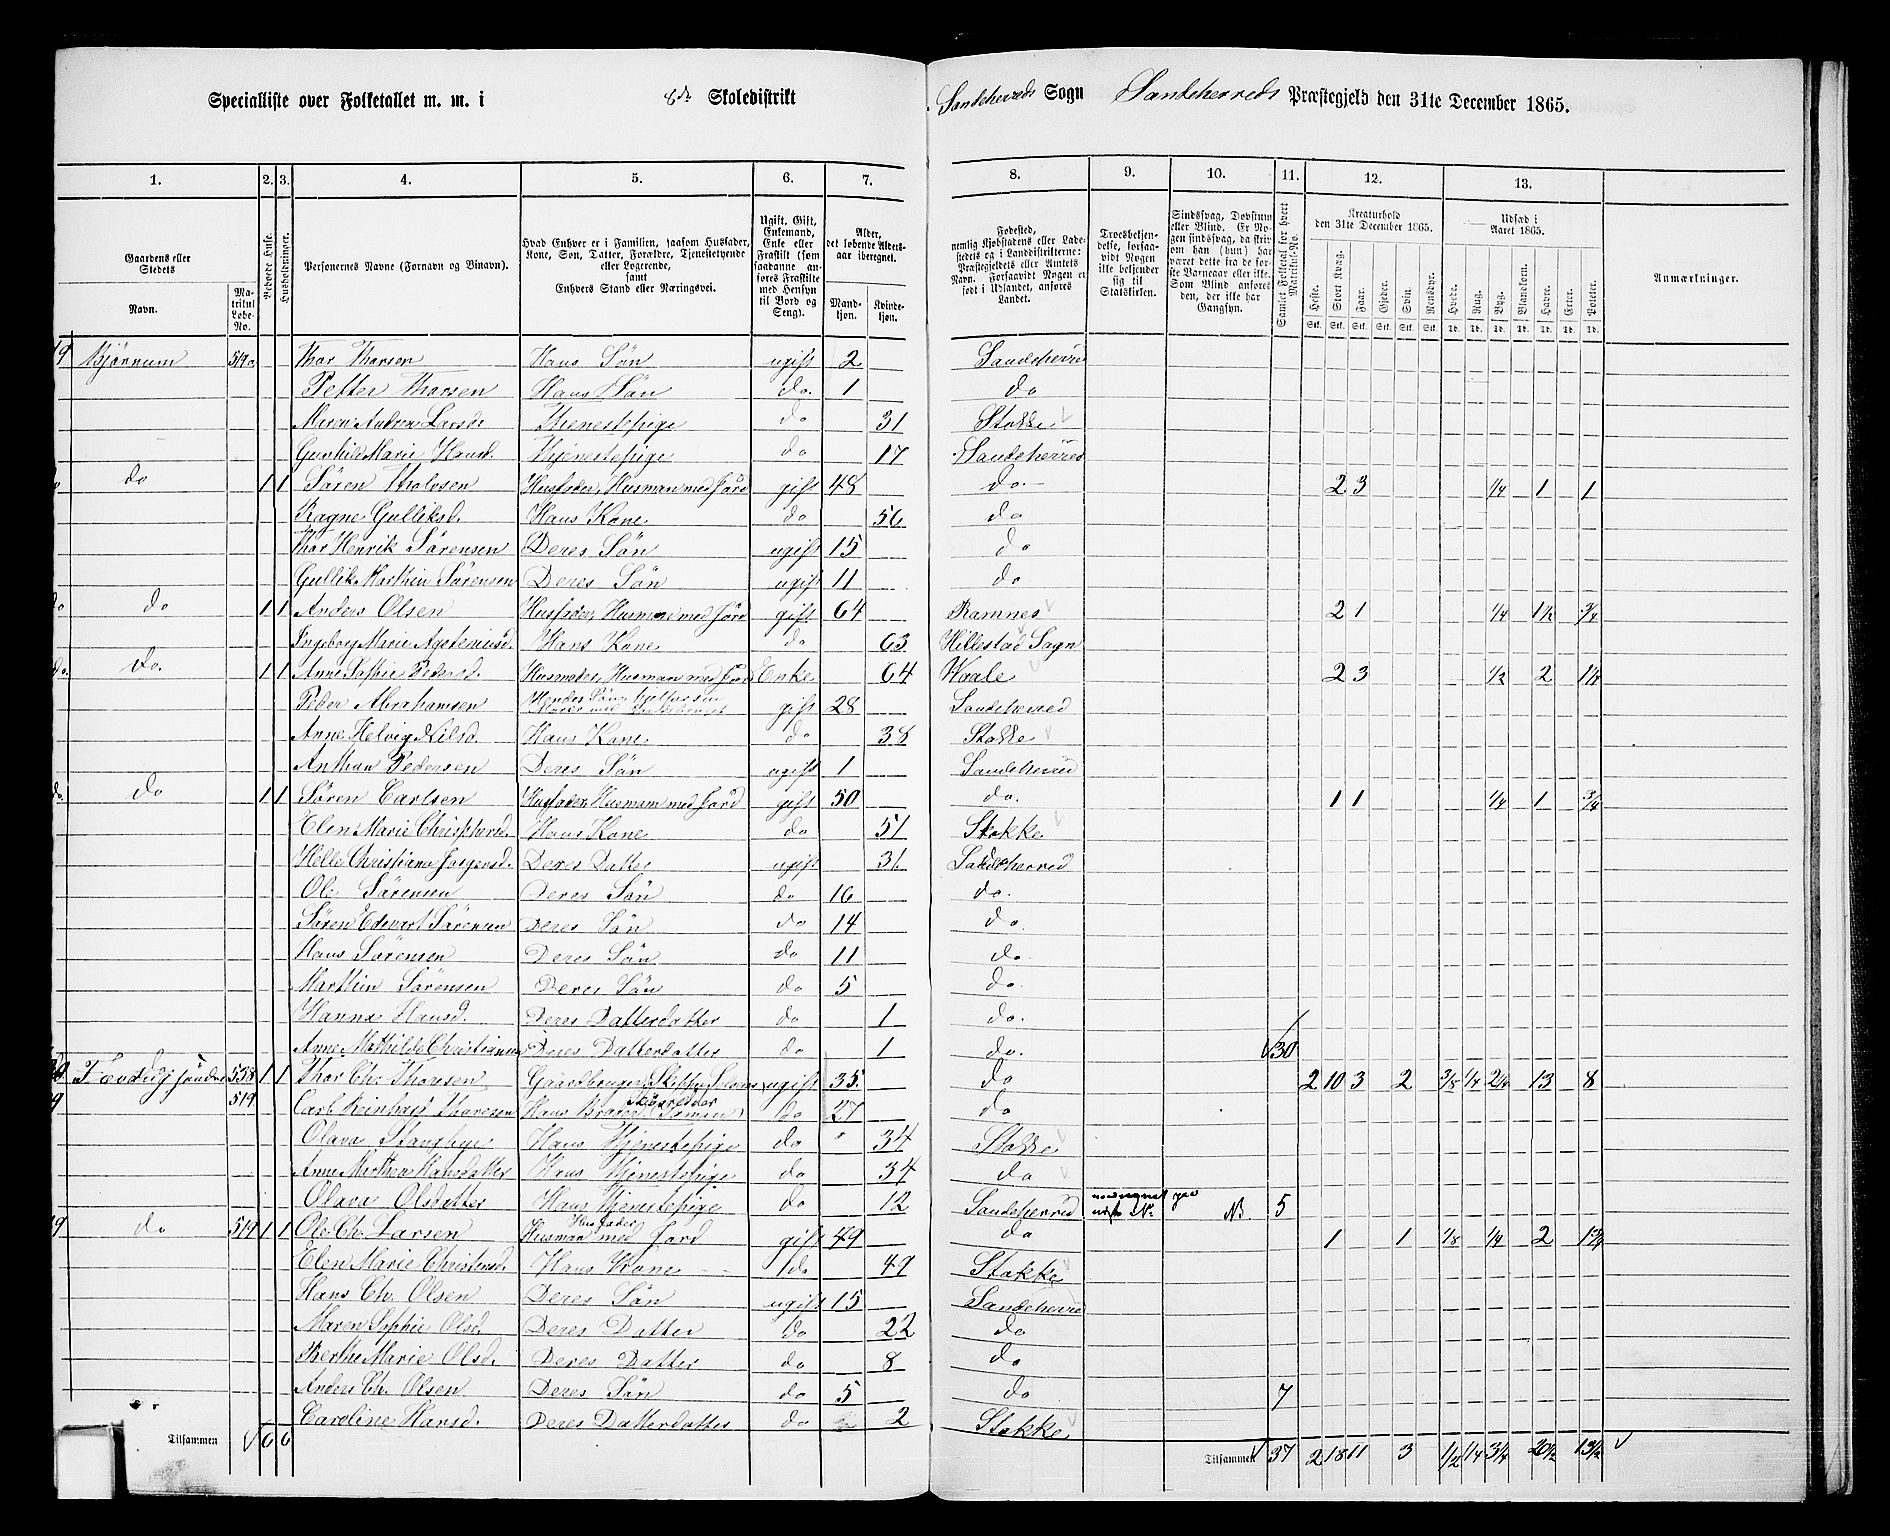 Specialliste over Folketallet m. m. i 8de Skoledistrikt Sandeherreds Sogn Sandeherreds Præstegjeld den 31te December 1865.
1. 2. 3. 4. 5. 6. 7. 8. 9. 10. 11. 12. 13.
Gaardens eller Stedets
Navn.
Matrikul Løbe-No.
Beboede Huse.
Husholdninger.
Personernes Navne (Fornavn og Binavn).
Hvad Enhver er i Familien, saasom Husfader, Kone, Søn, Datter, Forældre, Tjenestetyende eller Logerende, samt Enhvers Stand eller Næringsvei.
Ugift, Gift, Enkemand, Enke eller Fraskilt (som saadanne anføres Fraskilte med Hensyn til Bord og Seng).
Alder, det løbende Aldersaar iberegnet.
Mandkjøn.
Kvindekjøn.
Fødested, nemlig Kjøbstadens eller Ladestedets og i Landdistrikterne: Præstegjeldets eller Amtets Navn. Forsaavidt Nogen er født i Udlandet, anføres Landet.
Troesbekjendelse, forsaavidt Nogen ikke bekjender sig til Statskirken.
Sindssvag, Døvstum eller Blind. Er Nogen sindssvag, da skrives om han (hun) har været dette fra de første Barneaar eller ikke. Som Blind anføres den, der ikke har Gangsyn.
Samlet Folketal for hvert Matrikul-No.
Kreaturhold den 31te December 1865.
Heste. Stort Kvæg. Faar. Gjeder. Svin. Rensdyr.
Udsæd i Aaret 1865.
Hvede. Rug. Byg. Blandkorn. Havre. Erter. Poteter.
Anmærkninger.
19 Bjørnum 519a Thor Thorsen Hans Søn ugift 2 Sandeherred
Petter Thorsen Hans Søn do. 1 do
Maren Andrea Larsd. Tjenestepige do 31 Stokke
Gunhild Marie Hansd. Tjenestepige do 17 Sandeherred
do 1 1 Søren Tholvsen Husfader, Husman med Jord gift 48 do. 2 3 1/4 1 1
Ragne Gulliksd. Hans Kone do 56 do
Thor Henrik Sørensen Deres Søn ugift 15 do
Gullik Marthin Sørensen Deres Søn ugift 11 do
do do 1 1 Anders Olsen Husfader, Husman med Jord gift 64 Ramnes 2 1 1/4 1 1/2 3/4
Ingeborg Marie Hans Kone do 63 Hillestad Sogn
do. do. 1 1 Anne Sophie Pedersd. Husmoder, Husman med Jord Enke 64 Waale 2 3 1/2 2 1 1/4
Peder Abrahamsen Hendes Søn, gift 28 Sandeherred
Anne Helvig Nilsd. Hans Kone do 38 Stokke
Anthon Pedersen Deres Søn ugift 1 Sandeherred
do. do 1 1 Søren Carlsen Husfader, Husmam med Jord gift 50 do. 1 1 1/4 1 3/4
Elen Marie Christophersd. Hans Kone do 51 Stokke
Helle Christiane Jørgensd. Deres Datter ugift 31 Sandeherred
Ole Sørensen Deres Søn do 16 do.
Søren Edvart Sørensen Deres Søn do 14 do.
Hans Sørensen Deres Søn do 11 do
Marthin Sørensen Deres Søn do 5 do.
Hanna Hansd. Deres Datterdatter do 1 do.
Anne Mathilde Christiansen Deres Datterdatter do 1 do. 30
558 1 1 Thor Chr. Thorsen Gaardbruger, Skipper ugift 35 do 2 10 3 2 3/8 1/4 2 1/4 13 8
519 Carl Reinhart Thoresen Hans Broder do 27 do
Olava Hans Tjenestepige do 34 Stokke
Anne Marthea Hansdatter Hans Tjenestepige do 34 do
Olava Olsdatter Hans Tjenestepige do 12 Sandeherred 5
19 do 519 1 1 Ole Ch. Larsen Husfader Husman med Jord gift 49 do 1 1 1/8 1/4 2 1 3/4
Elen Marie Christensd. Hans Kone do 49 Stokke
Hans Ch. Olsen Deres Søn ugift 15 Sandeherred
Maren Sophie Olsd. Deres Datter do 22 do
Berthe Marie Olsd. Deres Datter do 8 do
Anders Ch. Olsen Deres Søn do 5 do 7
Caroline Hansd. Deres Datterdatter do 2 Stokke
Tilsammen 6 6 Tilsammen 37 2 18 11 3 1/2 1/4 3 1/4 20 1/2 13 1/2